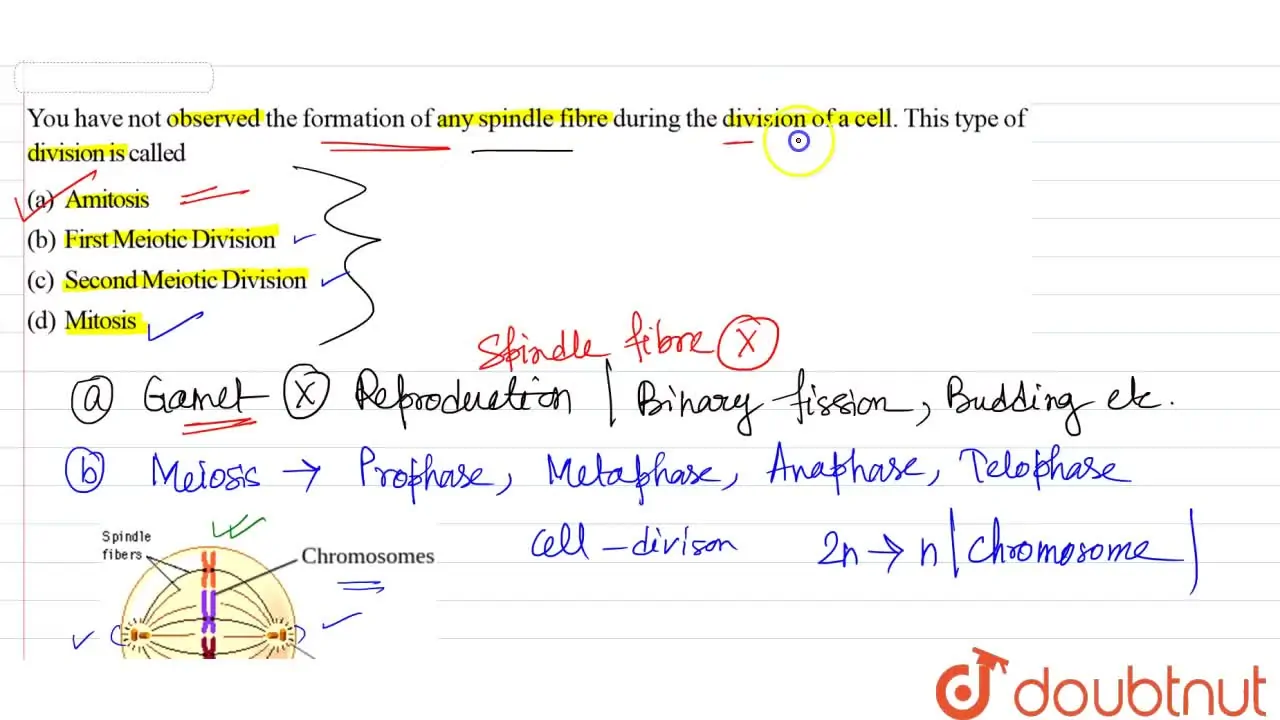 You have not observed the formation of any spindle fibre during the division of a cell. This type of
division is called
(a) Amitosis
(b) First Meiotic Division
(c) Second Meiotic Division
(d) Mitosis
Spindle fibre X
a Gamet X Reproduction | Binary fission, Budding etc.
b Meiosis → Prophase, Metaphase, Anaphase, Telophase
Cell - divison 2n → n | Chromosome |
Spindle
fibers
Chromosomes
doubtnut